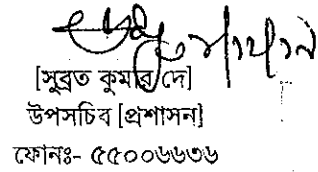 [সুব্রত কুমার দে]
উপসচিব [প্রশাসন]
ফোনঃ- ৫৫০০৬৬৩৬